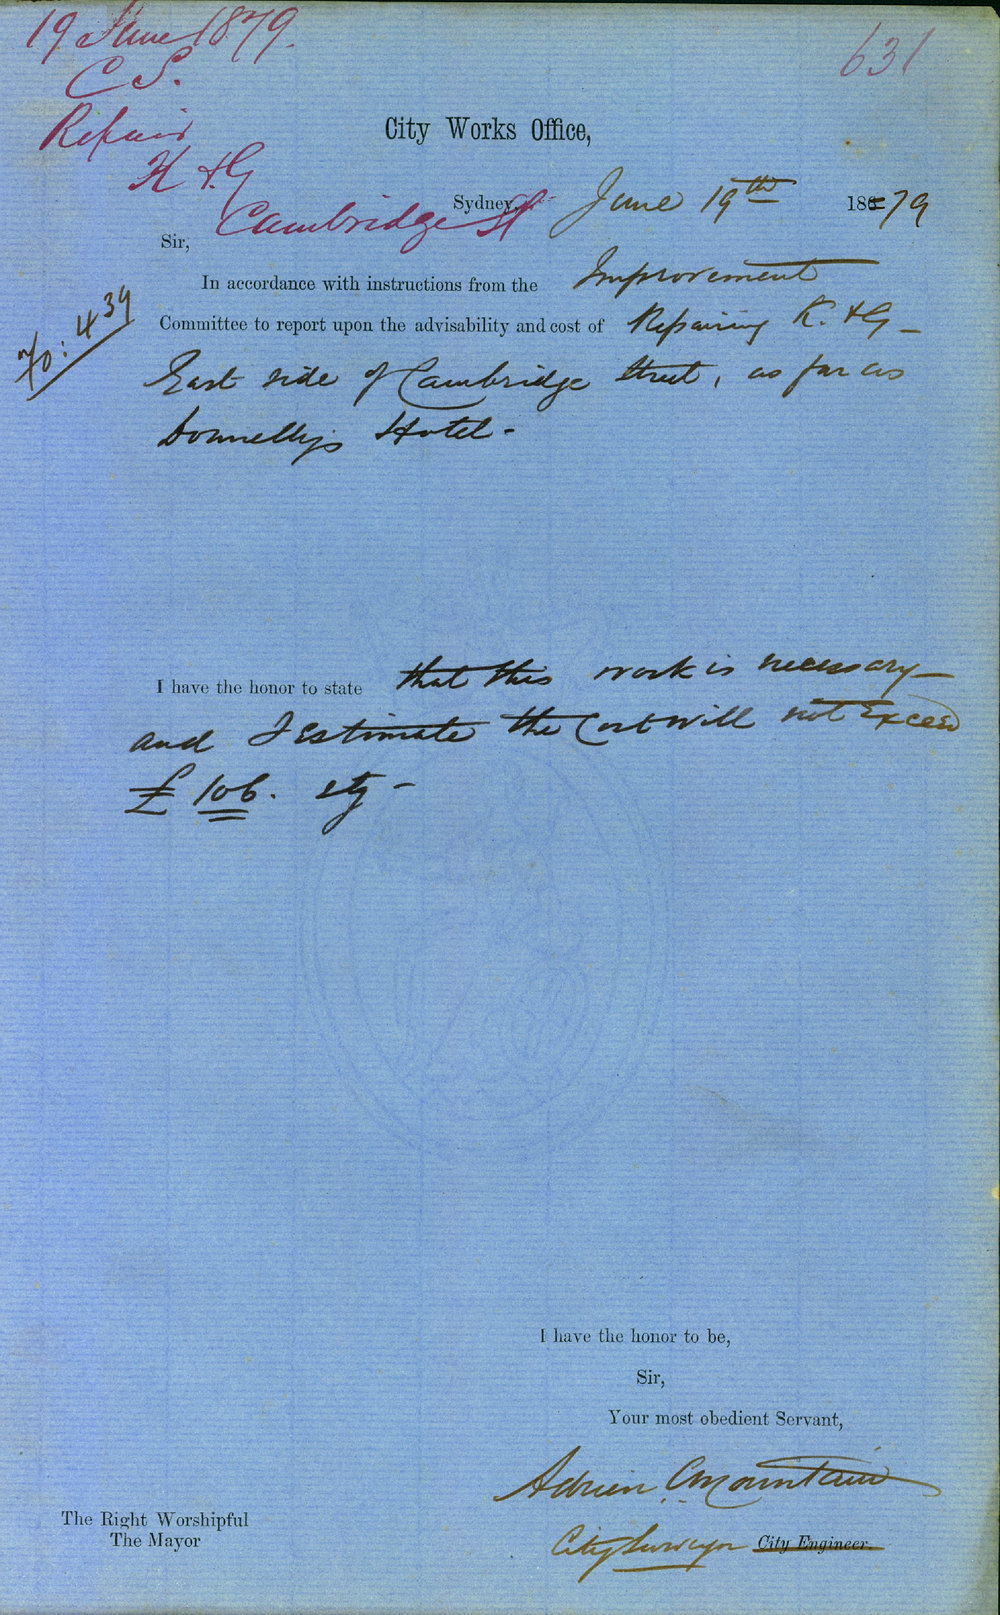 19 June 1879.
631
C S.
Repair
K & G
Cambridge St
City Works Office,
Sydney, June 19th 1879
Sir,
In accordance with instructions from the Improvement
70:439
Committee to report upon the advisability and cost of Repairing K. & G –
East side of Cambridge Street, as far as
Donnelly's Hotel –
I have the honor to state that this work is necessary –
and I estimate the Cost will not Exceed
£ 106. stg –
I have the honor to be,
Sir,
Your most obedient Servant,
Adrien C Mountain
City Surveyor City Engineer.
The Right Worshipful
The Mayor